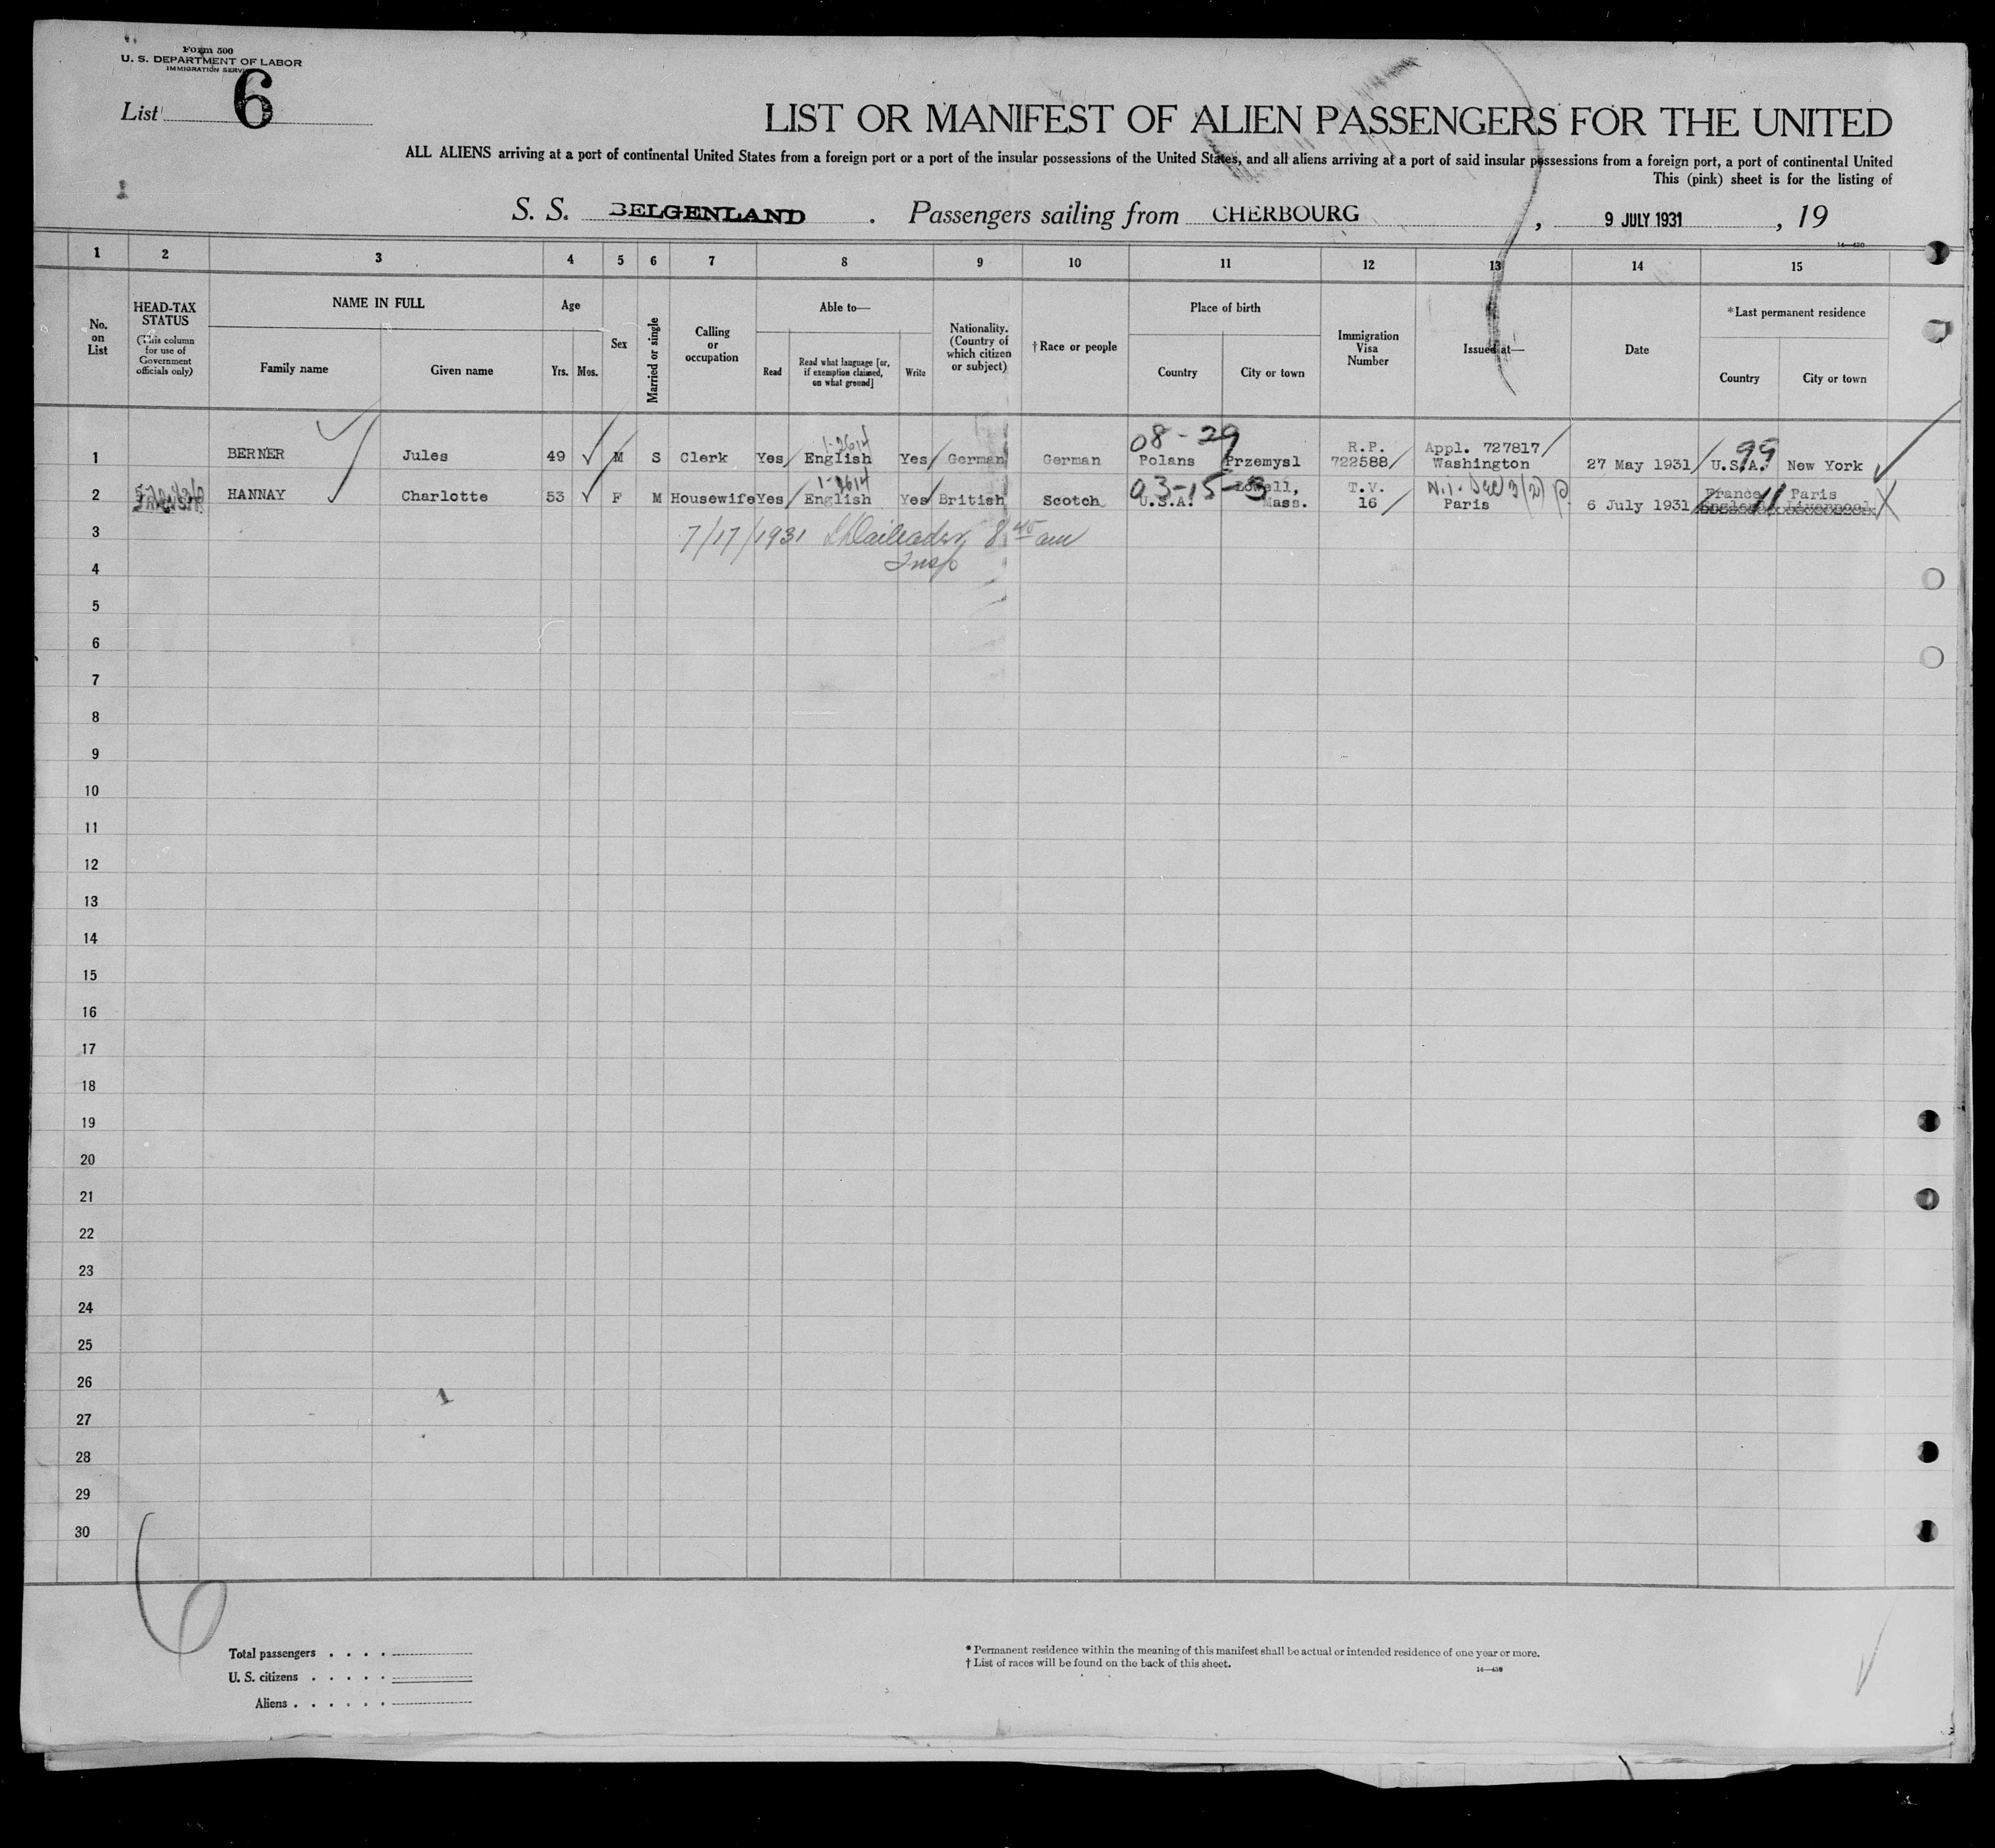 Form 500
U. S. DEPARTMENT OF LABOR
IMMIGRATION SERVICE
List 6
LIST OR MANIFEST OF ALIEN PASSENGERS FOR THE UNITED
ALL ALIENS arriving at a port of continental United States from a foreign port or a port of the insular possessions of the United States, and all aliens arriving at a port of said insular possessions from a foreign port, a port of continental United
This (pink) sheet is for the listing of
1
S. S. BELGENLAND . Passengers sailing from CHERBOURG , 9 JULY 1931 , 19
14—430
1 2 3 4 5 6 7 8 9 10 11 12 13 14 15
No. on List
HEAD-TAX STATUS
(This column for use of Government officials only)
NAME IN FULL
Family name Given name
Age
Yrs. Mos.
Sex
Married or single
Calling or occupation
Able to—
Read Read what language [or, if exemption claimed, on what ground] Write
Nationality. (Country of which citizen or subject)
† Race or people
Place of birth
Country City or town
Immigration Visa Number
Issued at—
Date
*Last permanent residence
Country City or town
1-2614 08-29 R.P. Appl. 727817 99
1 BERNER Jules 49 M S Clerk Yes English Yes German German Polans Przemysl 722588 Washington 27 May 1931 U.S.A. New York
1-2614 03-15-3 Lowell, T.V. France 11 Paris
2 HANNAY Charlotte 53 F M Housewife Yes English Yes British Scotch U.S.A. Mass. 16 Paris 6 July 1931 England Liverpool
3
7/17/1931 8 40 am
Insp
4
5
6
7
8
9
10
11
12
13
14
15
16
17
18
19
20
21
22
23
24
25
26
1
27
28
29
30
6
Total passengers . . . .
U. S. citizens . . . . .
Aliens . . . . . .
* Permanent residence within the meaning of this manifest shall be actual or intended residence of one year or more.
† List of races will be found on the back of this sheet.
14—430